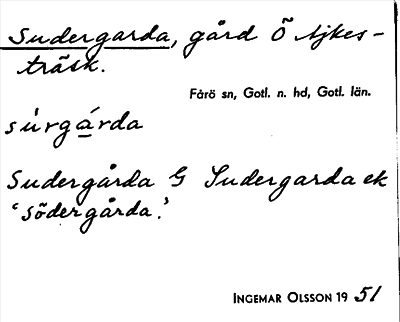 Sudergarda, gård Ö Ajkes-
träsk.
Fårö sn, Gotl. n. hd, Gotl. län.
súrgárda
Sudergårda G Sudergarda ek
'Södergårda.'
INGEMAR OLSSON 19 51